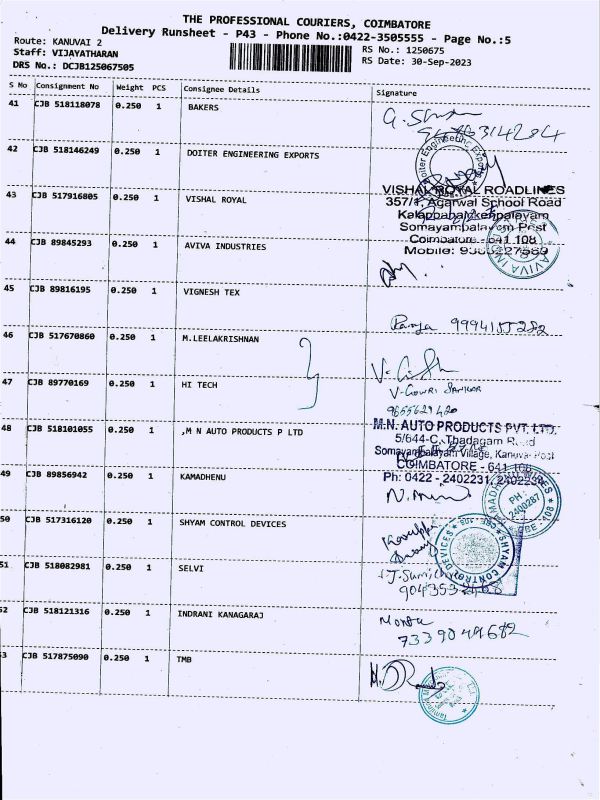 THE PROFESSIONAL COURIERS, COIMBATORE
Delivery Runsheet - P43 - Phone No.:0422-3505555 - Page No.:5
Route: KANUVAI 2
Staff: VIJAYATHARAN
DRS No.: DCJB125067505
RS No.: 1250675
RS Date: 30-Sep-2023
S No Consignment No Weight PCS Consignee Details Signature
41 CJB 518118078 0.250 1 BAKERS
42 CJB 518146249 0.250 1 DOITER ENGINEERING EXPORTS
Doiter Engineering Exports
43 CJB 517916805 0.250 1 VISHAL ROYAL
VISHAL ROYAL ROADLINES
357/1, Agarwal School Road
Somayampalayam Post
Coimbatore - 641 108
44 CJB 89845293 0.250 1 AVIVA INDUSTRIES
45 CJB 89816195 0.250 1 VIGNESH TEX
Ramya 9994155282
46 CJB 517670860 0.250 1 M.LEELAKRISHNAN
47 CJB 89770169 0.250 1 HI TECH
V-GOWRI SANKAR
48 CJB 518101055 0.250 1 ,M N AUTO PRODUCTS P LTD
M.N. AUTO PRODUCTS PVT. LTD.
5/644-C, Thadagam Road
Somayampalayam Village, Kanuvai Post
COIMBATORE - 641 108
Ph: 0422 - 2402231, 2402234
49 CJB 89856942 0.250 1 KAMADHENU
PH: 2400287
50 CJB 517316120 0.250 1 SHYAM CONTROL DEVICES
SHYAM CONTROL DEVICES
51 CJB 518082981 0.250 1 SELVI
52 CJB 518121316 0.250 1 INDRANI KANAGARAJ
7339049682
53 CJB 517875090 0.250 1 TMB